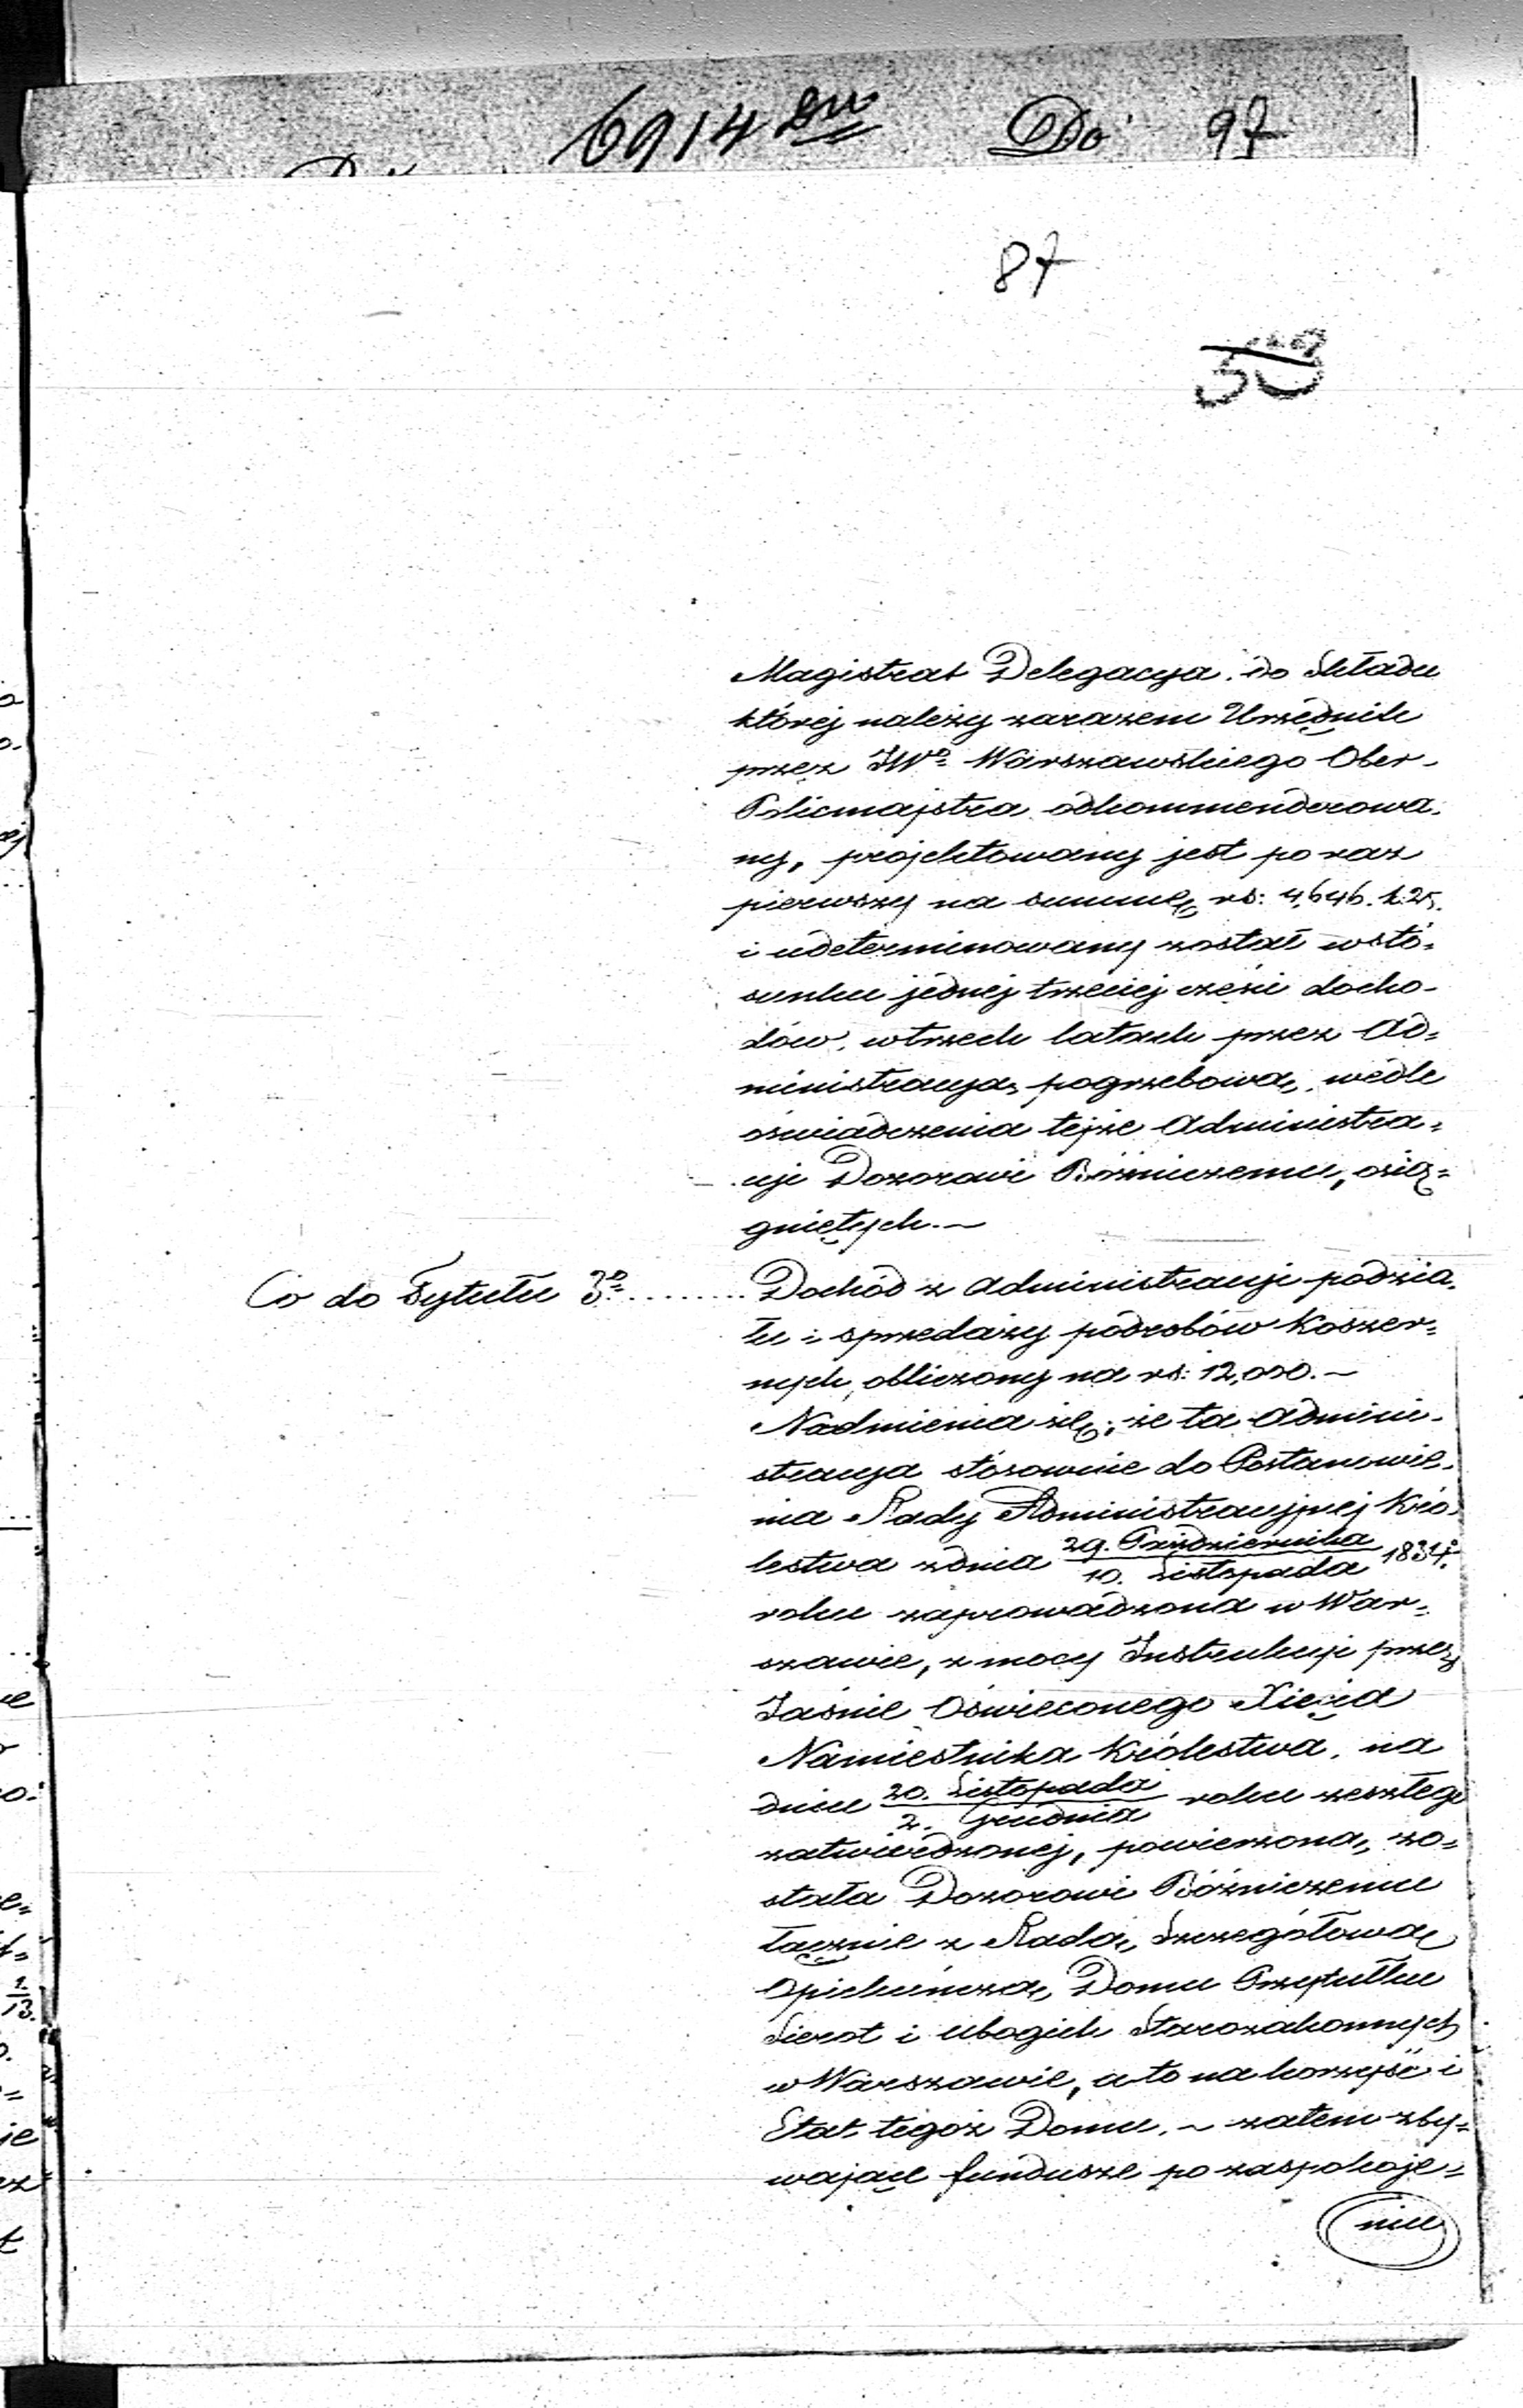 6914 Do 97
87
Magistrat Delegacya do składu
której należy zarazem Urzędnik
przez JWº Warszawskiego Ober-
Policmajstra odkommenderowa-
ny, projektowany jest po raz
pierwszy na summę rs: 4,646. k. 25.
i udeterminowany został w sto-
sunku jednej trzeciej części docho-
dów, w trzech latach przez Ad=
ministracyą pogrzebową, wedle
oświadczenia tejże Administra=
cyi Dozorowi Bóżniczemu, osią=
gniętych.~
Co do Tytułu 3º ........ Dochód z Administracyi podzia-
łu i sprzedaży podrobów Koszer=
nych obliczony na rs: 12,000.~
Nadmienia się, że ta Admini-
stracya stósownie do Postanowie-
nia Rady Administracyjnej Kró-
lestwa z dnia 29. Października / 10. Listopada 1834.
roku zaprowadzona w War=
szawie, z mocy Instrukcyi przez
Jaśnie Oświeconego Xięcia
Namiestnika Królestwa, na
dniu 20. Listopada / 2. Grudnia roku zeszłego
zatwierdzonej, powierzoną zo=
stała Dozorowi Bóżniczemu
łącznie z Radą Szczegółową
Opiekuńczą Domu Przytułku
Sierot i Ubogich Starozakonnych
w Warszawie, a to na korzyść i
Etat tegoż Domu.~ zatem zby=
wające fundusze po zaspokoje=
niu